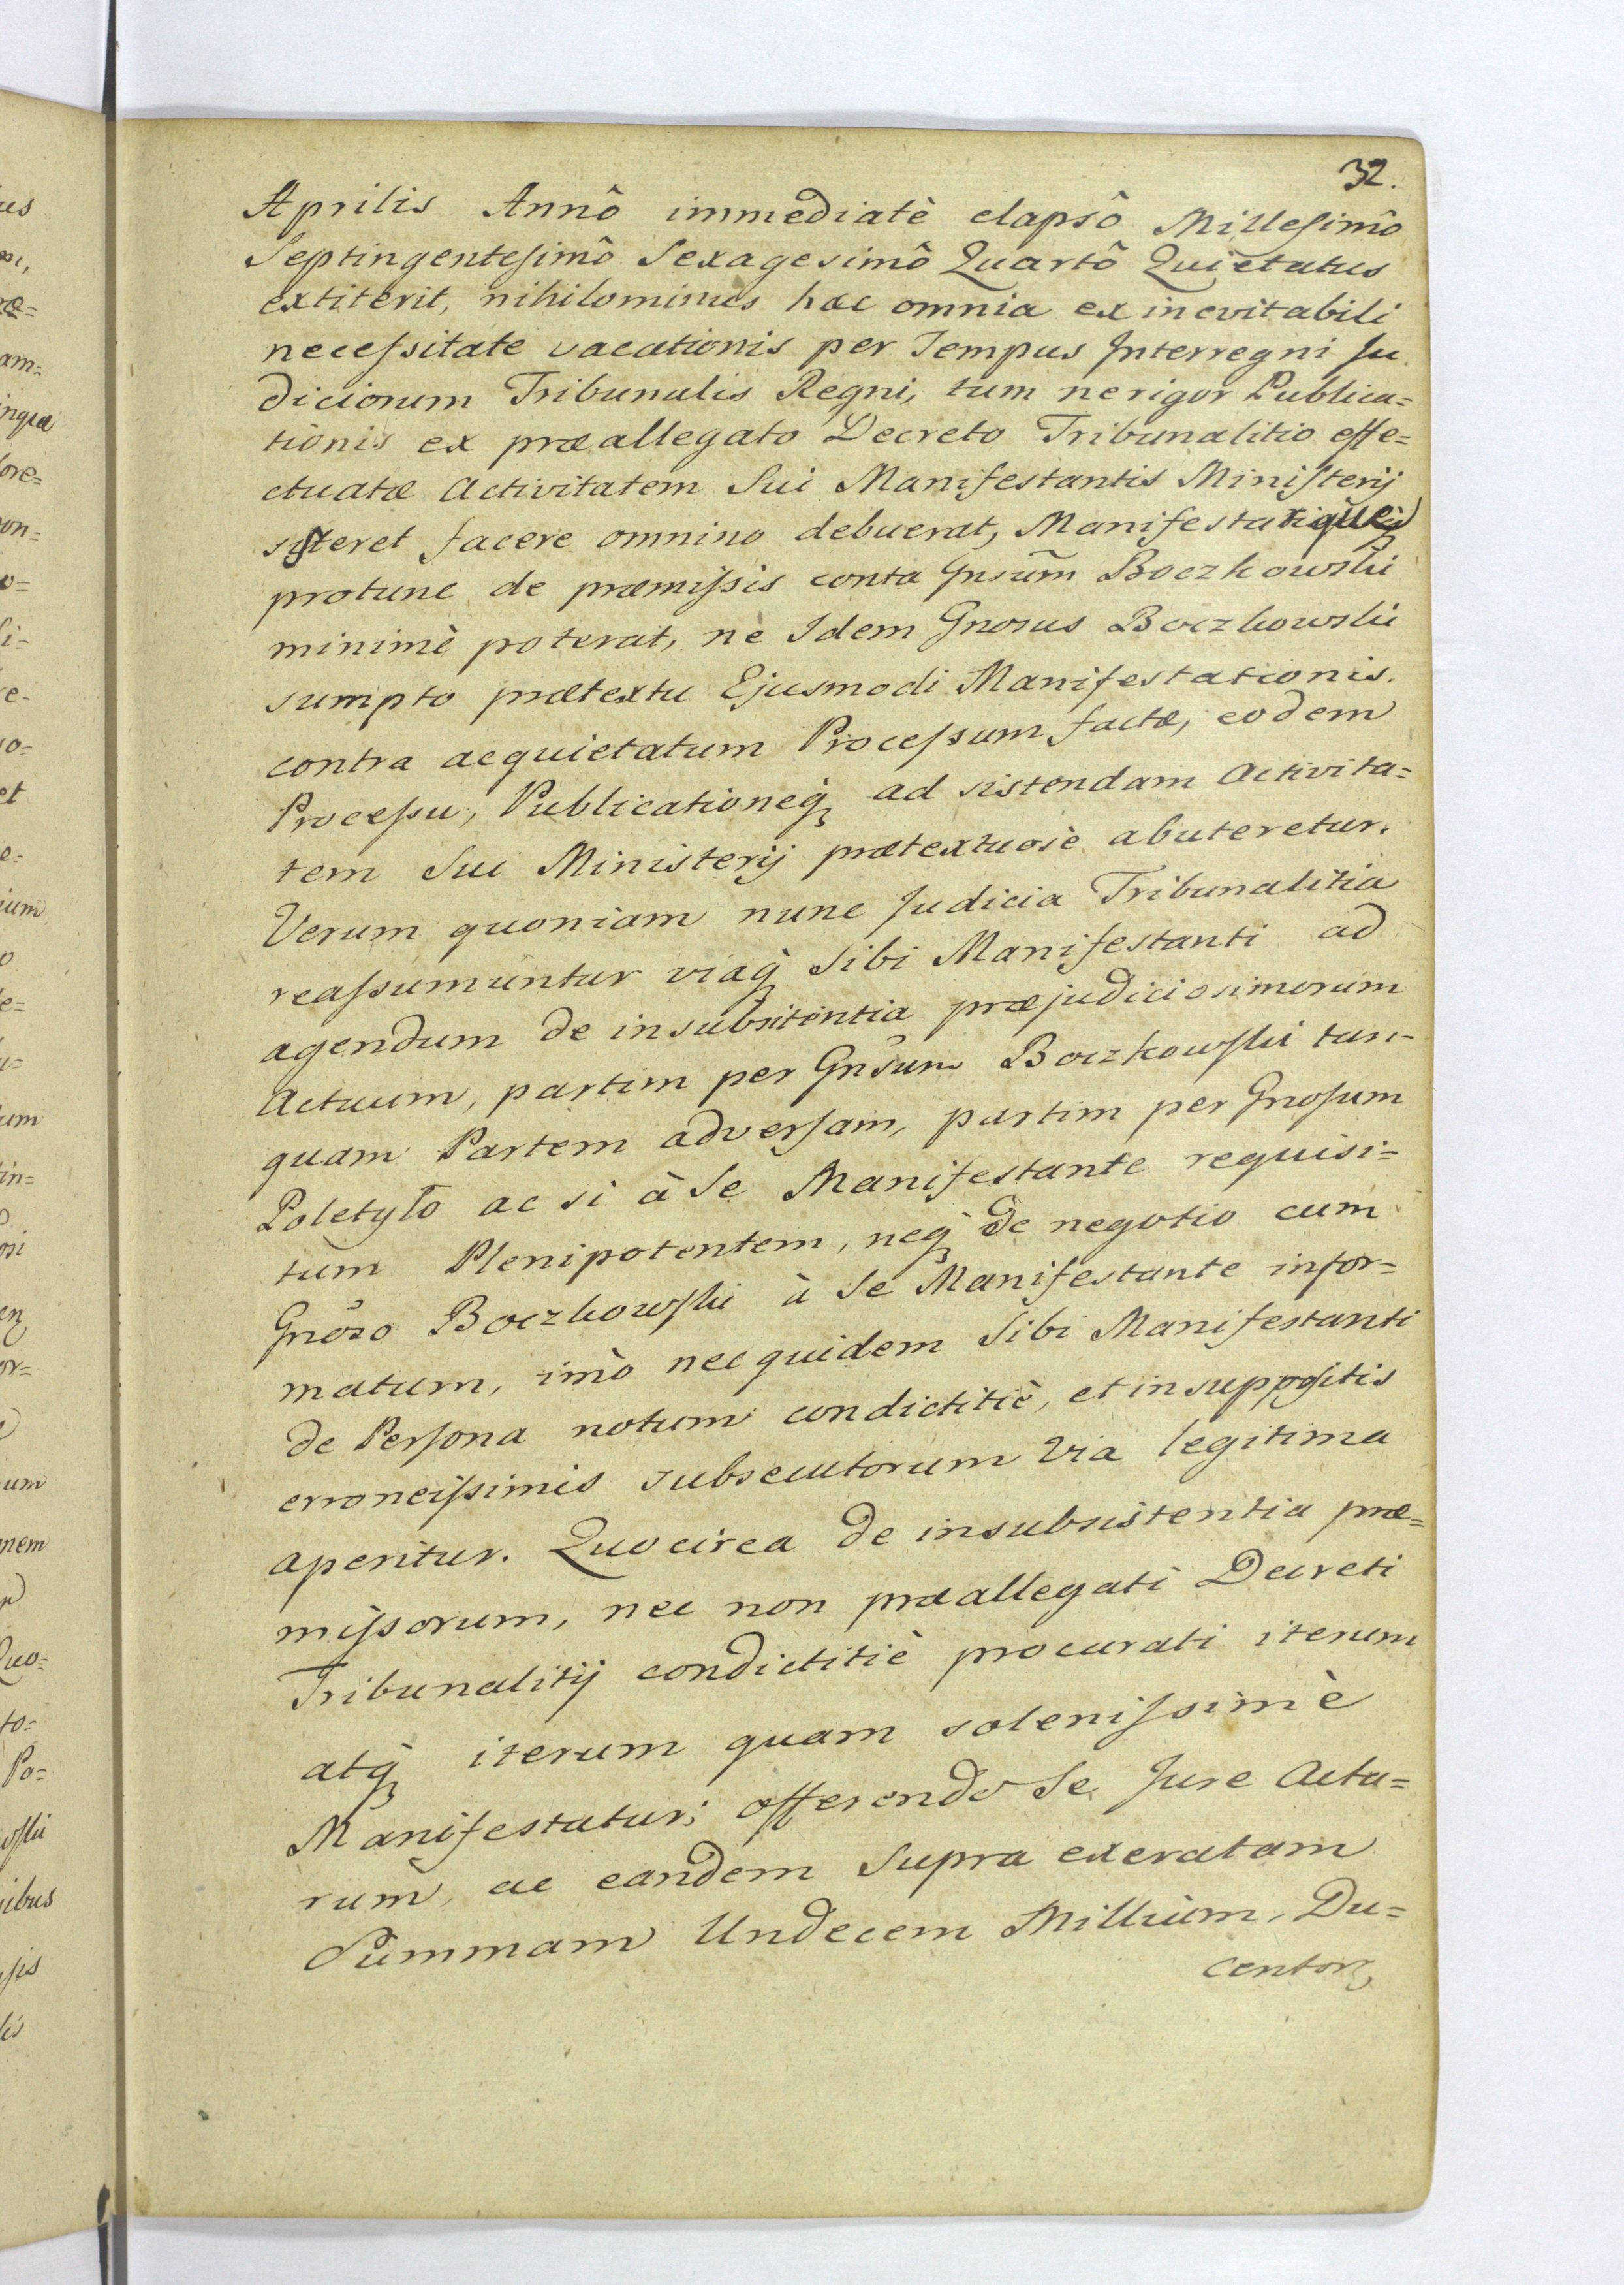 32.
Aprilis Annô immediatè elapsô Millesimô
Septingentesimô Sexagesimô Quartô Quietatus
extiterit, nihilominus hæc omnia ex inevitabili
necessitate vacationis per Tempus Interregni Ju
diciorum Tribunalis Regni, tum ne rigor Publica=
tionis ex præallegato Decreto Tribunalitio effe=
ctuatæ Activitatem Sui Manifestantis Ministerij
sisteret facere omnino debuerat, Manifestarique
protunc de præmissis conta Gnsum̃ Boczkowski
minimè poterat, ne Idem Gnosus Boczkowski
sumpto prætextu Ejusmodi Manifestationis.
contra acquietatum Processum factæ, eodem
Processu, Publicationeq̃ ad sistendam Activita=
tem Sui Ministerij prætextuosè abuteretur.
Verum quoniam nunc Judicia Tribunalitia
reassumuntur viaq̃ Sibi Manifestanti ad
agendum de insubsitentia præjudiciosimorum
Actuum, partim per Gnsum Boczkowski tan-
quam Partem adversam, partim per Gnosum
Poletyło ac si à Se Manifestante requisi=
tum Plenipotentem, neq̃ de negotio cum
Gnoso Boczkowski à Se Manifestante infor=
matum, imò nec quidem Sibi Manifestanti
de Persona notum condictitiè, et in suppositis
erroneissimis subsecutorum via legitima
aperitur. Quocirca de insubsistentia præ=
missorum, nec non præallegati Decreti
Tribunalitij condictitiè procurati iterum
atq̃ iterum quam solenissimè
Manifestatur; offerendo Se Jure Actu=
rum, ac eandem Supra exeratam
Summam Undecem Millium, Du=
centorꝫ